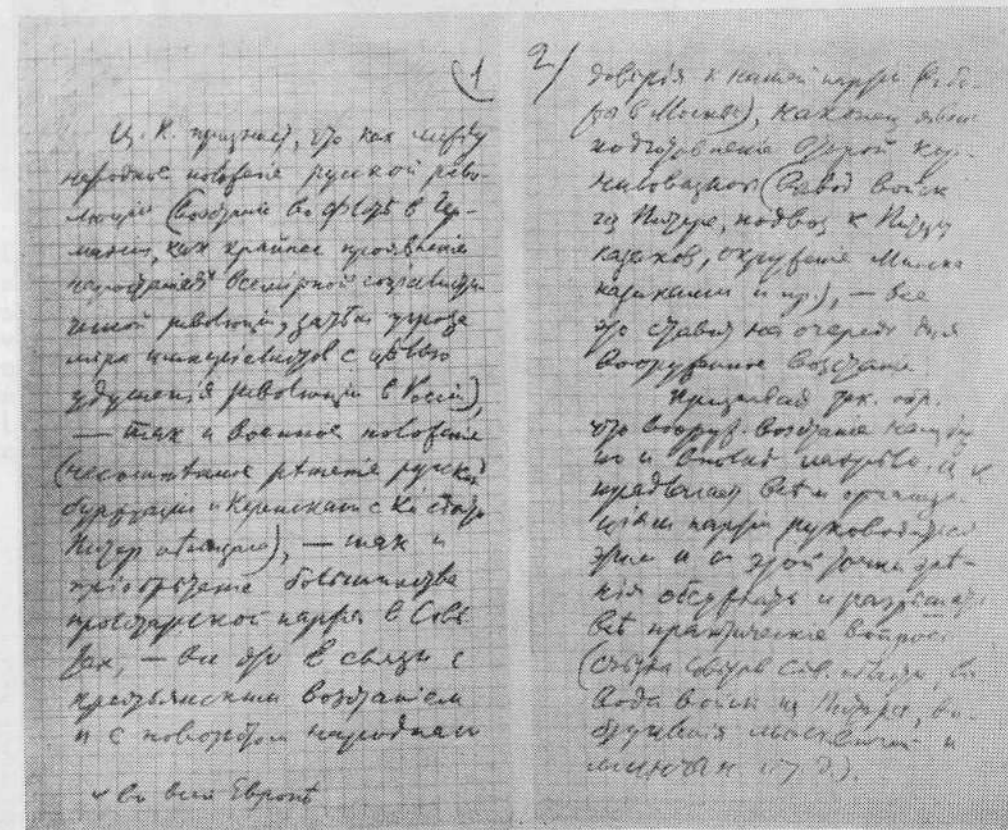 (1
Ц. К. признает, что как между
народное положение русской рево-
люции (восстание во флотѣ в Гер-
мании, как крайнее проявление
наростания всемирной социалисти-
ческой революции, затѣм угроза
мира имперiалистов с цѣлью
удушенiя революции в России),
— так и военное положенiе
(несомнѣнное рѣшенiе русской
буржуазiи и Керенскаго с Ко сдать
Питер нѣмцам), — так и
прiобрѣтенiе большинства
пролетарской партiей в Совѣ
тах, — все это в связи с
крестьянским возстанiем
и с поворотом народнаго
✓ во всей Европѣ
2/
довѣрiя к нашей партiи (выбо-
ры в Москвѣ), наконец явное
подготовленiе второй кор-
ниловщины (вывод войск
из Питера, подвоз к Питеру
казаков, окруженiе Минска
казаками и пр.), — все
это ставит на очередь дня
вооруженное возстание
Признавая так. обр.
что вооруж. возстанiе неизбѣж
но и вполнѣ назрѣло, Ц К
предлагает всѣм организа-
цiям партiи руководиться
этим и с этой точки зрѣ-
нiя обсуждать и разрѣшать
всѣ практическiе вопросы
(съѣзда совѣтов Сѣв. области, вы
вода войск из Питера, вы-
ступленiя москвичей и
минчан и т. д.).